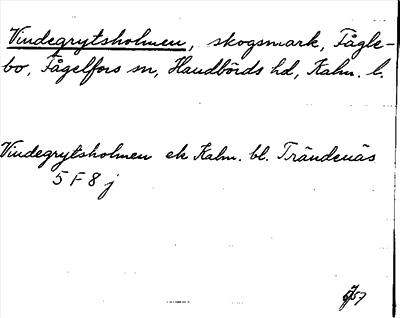 Vindegrytsholmen, skogsmark, Fågle-
bo, Fågelfors sn, Handbörds hd, Kalm. l.
Vindegrytsholmen ek Kalm. bl. Trändenäs
5 F 8 j
57